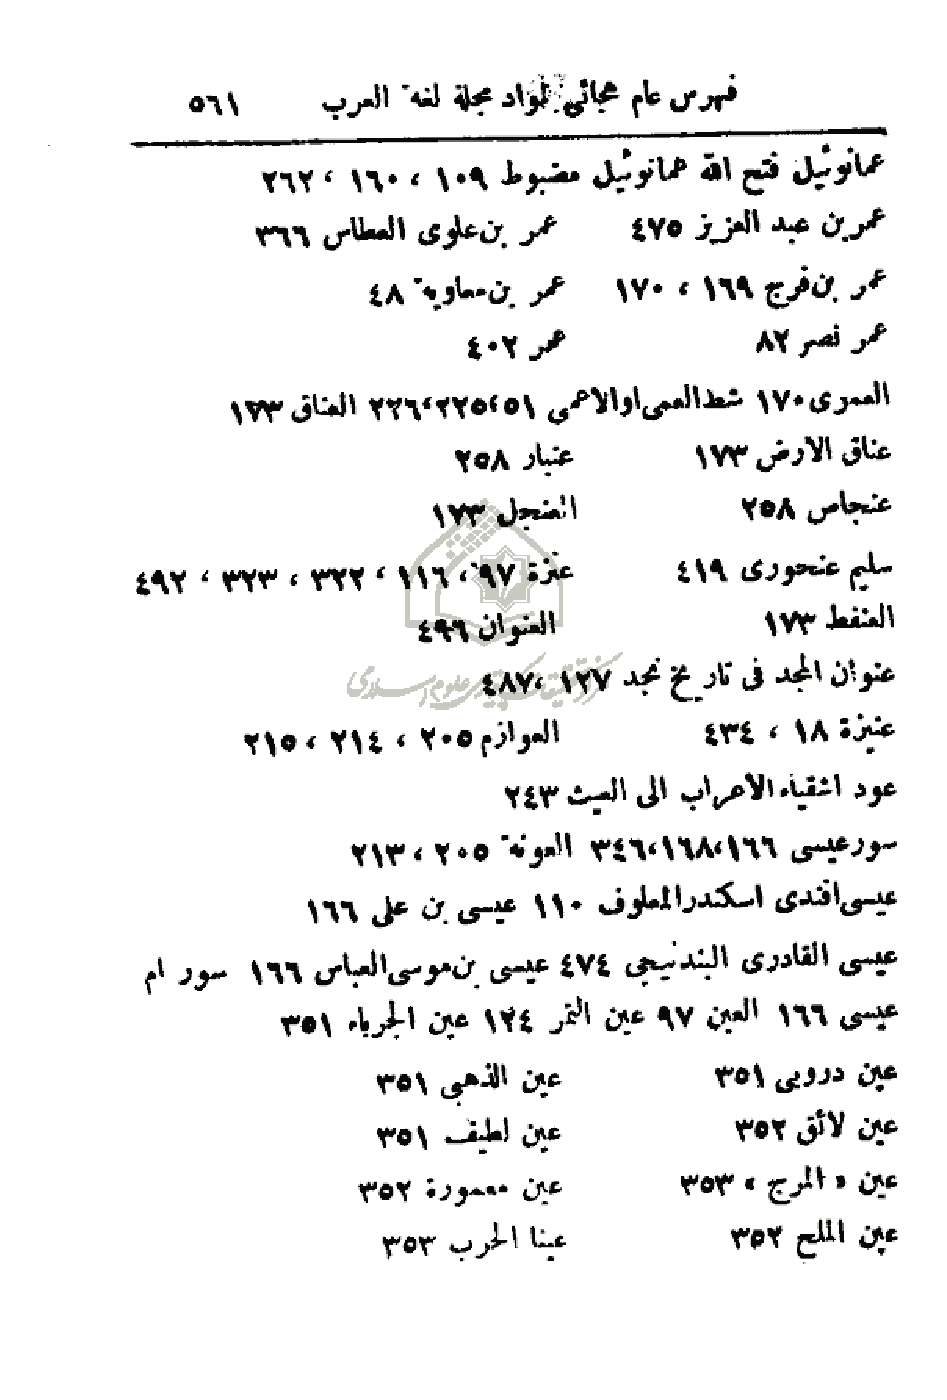 فهرس عام هجائي لمواد مجلة لغة العرب ٥٦١
عمانوئيل فتح الله عمانوئيل مضبوط ١٠٩ ، ١٦٠ ، ٢٦٢
عمر بن عبد العزيز ٤٧٥ عمر بن علوى العطاس ٣٦٦
عمر بن فرج ١٦٩ ، ١٧٠ عمر بن معاوية ٤٨
عمر نصر ٨٢ عمر ٤٠٢
العمرى ١٧٠ شط العمى او الاعمى ٥١،٢٢٥،٢٢٦ العناق ١٧٣
عناق الارض ١٧٣ عنبار ٢٥٨
عنجاص ٢٥٨ العنجل ١٧٣
سليم عنحورى ٤١٩ عنزة ٩٧ ، ١١٦ ، ٣٢٢ ، ٣٢٣ ، ٤٩٢
العنفط ١٧٣ العنوان ٤٩٦
عنوان المجد فى تاريخ نجد ١٢٧ ،٤٨٧
عنيزة ١٨ ، ٤٣٤ العوازم ٢٠٥ ، ٢١٤ ، ٢١٥
عود اشقياء الاعراب الى العيث ٢٤٣
سور عيسى ١٦٦،١٦٨،٣٤٦ العونة ٢٠٥ ، ٢١٣
عيسى افندى اسكندر المعلوف ١١٠ عيسى بن على ١٦٦
عيسى القادرى البندنيجي ٤٧٤ عيسى بن موسى العباس ١٦٦ سور ام
عيسى ١٦٦ العين ٩٧ عين التمر ١٢٤ عين الجرباء ٣٥١
عين دروبى ٣٥١ عين الذهبى ٣٥١
عين لائق ٣٥٢ عين لطيف ٣٥١
عين « المرج » ٣٥٣ عين معمورة ٣٥٢
عين الملح ٣٥٢ عينا الحرب ٣٥٣